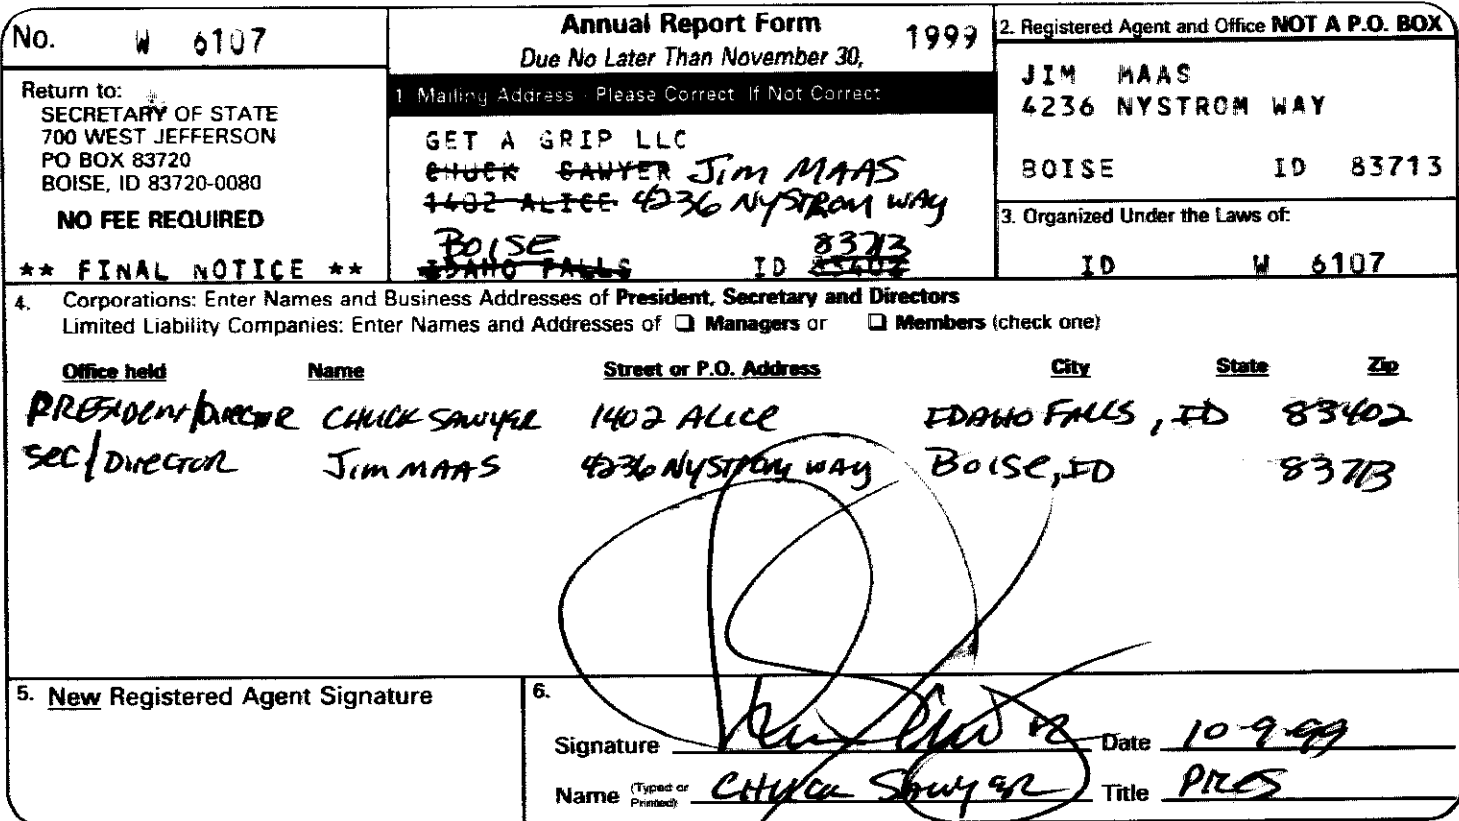 No. W 6107
Return to:
SECRETARY OF STATE
700 WEST JEFFERSON
PO BOX 83720
BOISE, ID 83720-0080
NO FEE REQUIRED
** FINAL NOTICE **
Annual Report Form 1999
Due No Later Than November 30,
1. Mailing Address - Please Correct If Not Correct
GET A GRIP LLC
CHUCK SAWYER JIM MAAS
1402 ALICE 4236 NYSTROM WAY
BOISE 83713
IDAHO FALLS ID 83402
2. Registered Agent and Office NOT A P.O. BOX
JIM MAAS
4236 NYSTROM WAY
BOISE ID 83713
3. Organized Under the Laws of:
ID W 6107
4. Corporations: Enter Names and Business Addresses of President, Secretary and Directors
Limited Liability Companies: Enter Names and Addresses of ❑ Managers or ❑ Members (check one)
Office held Name Street or P.O. Address City State Zip
PRESIDENT/DIRECTOR CHUCK SAWYER 1402 ALICE IDAHO FALLS, ID 83402
SEC/DIRECTOR JIM MAAS 4236 NYSTROM WAY BOISE, ID 83713
5. New Registered Agent Signature
6.
Signature Date 10-9-99
Name (Typed or Printed) CHUCK SAWYER Title PRES